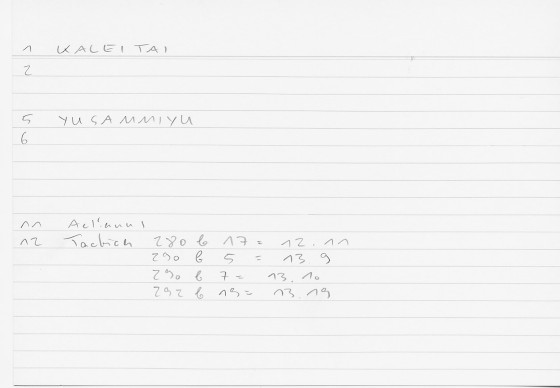 1 KALEITAI
2
5 YUSAMMIYU
6
11 Act'anus
12 Tachich 280 b 17 = 12.11
290 b 5 = 13.9
290 b 7 = 13.10
292 b 19 = 13.19